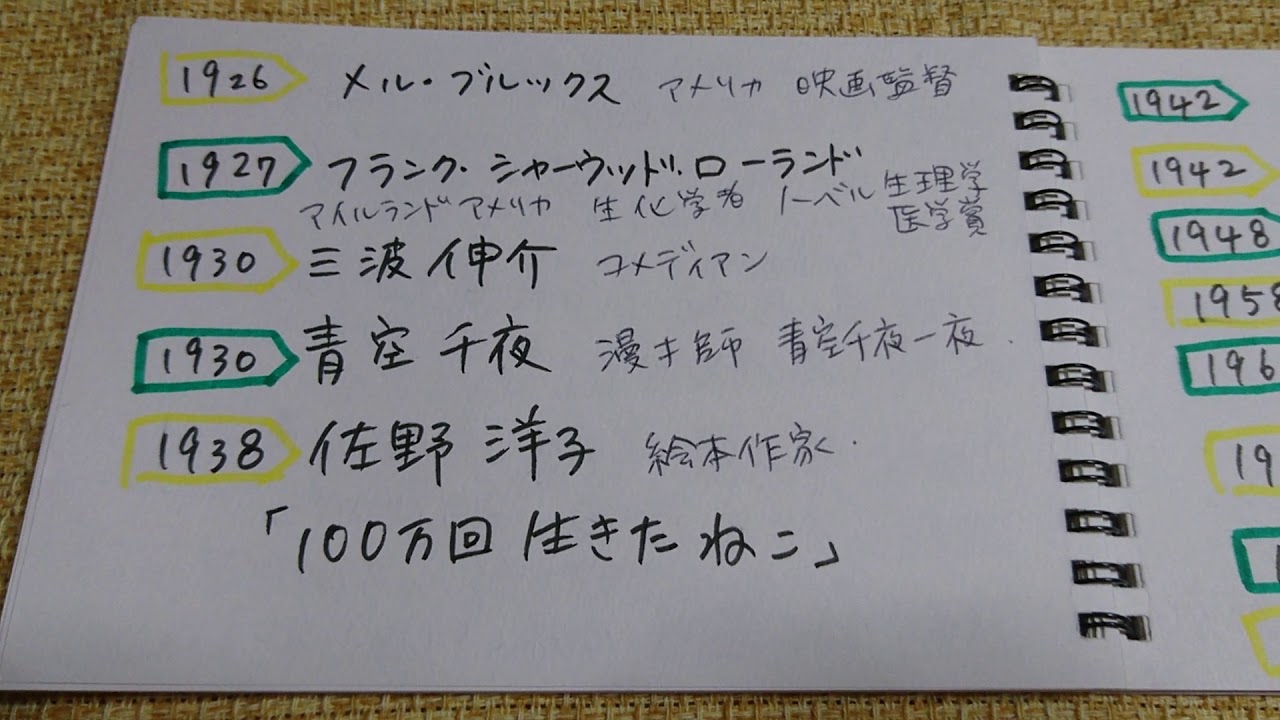 1926 メル・ブルックス アメリカ 映画監督
1927 フランク・シャーウッド・ローランド
アイルランドアメリカ 生化学者 ノーベル生理学
医学賞
1930 三波伸介 コメディアン
1930 青空千夜 漫才師 青空千夜一夜.
1938 佐野洋子 絵本作家.
「100万回生きたねこ」
1942
1942
1948
1958
196
19